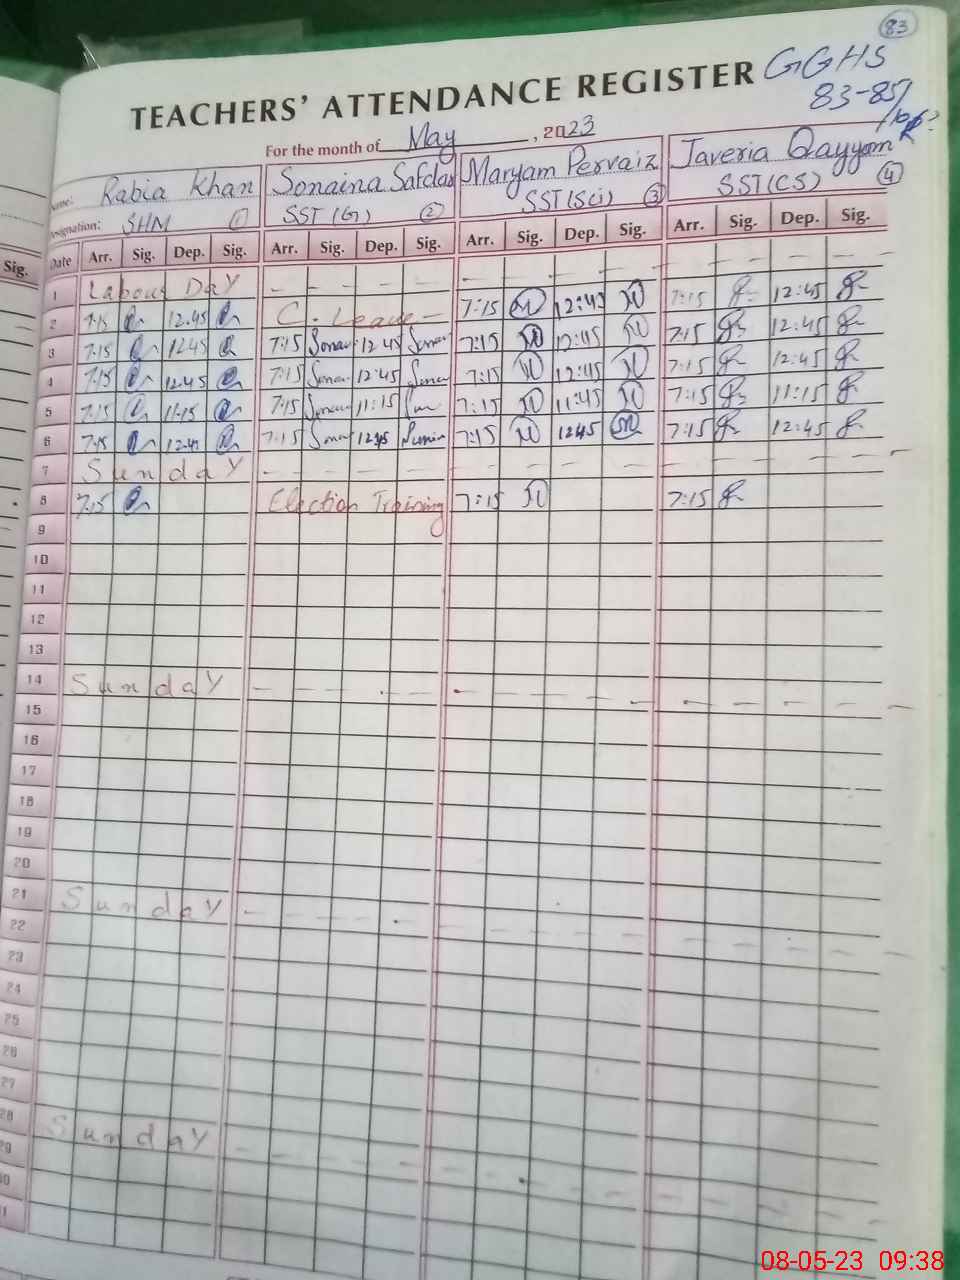 83
GGHS
83-85/
TEACHERS' ATTENDANCE REGISTER
For the month of May, 2023
Name: Rabia Khan Sonaina Safdar Maryam Pervaiz Javeria Qayyam
Designation: SHM 1 SST(G) 2 SST(Sci) 3 SST(CS) 4
Sig. Date Arr. Sig. Dep. Sig. Arr. Sig. Dep. Sig. Arr. Sig. Dep. Sig. Arr. Sig. Dep. Sig.
1 Labour Day - - - - - - - - - - - -
2 7:15 12.45 C. Leave - 7:15 12:45 7:15 12:45
3 7:15 12.45 7:15 12:45 7:15 12:45 7:15 12:45
4 7:15 12.45 7:15 12:45 7:15 12:45 7:15 12:45
5 7:15 11.15 7:15 11:15 7:15 11:45 7:15 11:15
6 7:15 12.45 7:15 12:45 7:15 12:45 7:15 12:45
7 Sunday - - - - - - - - - - - -
8 7:15 Election Training 7:15 7:15
9
10
11
12
13
14 Sunday - - - - - - - - - - - -
15
16
17
18
19
20
21 Sunday - - - - - - - - - - - -
22
23
24
25
26
27
28 Sunday - - - - - - - - - - - -
29
30
31
08-05-23 09:38